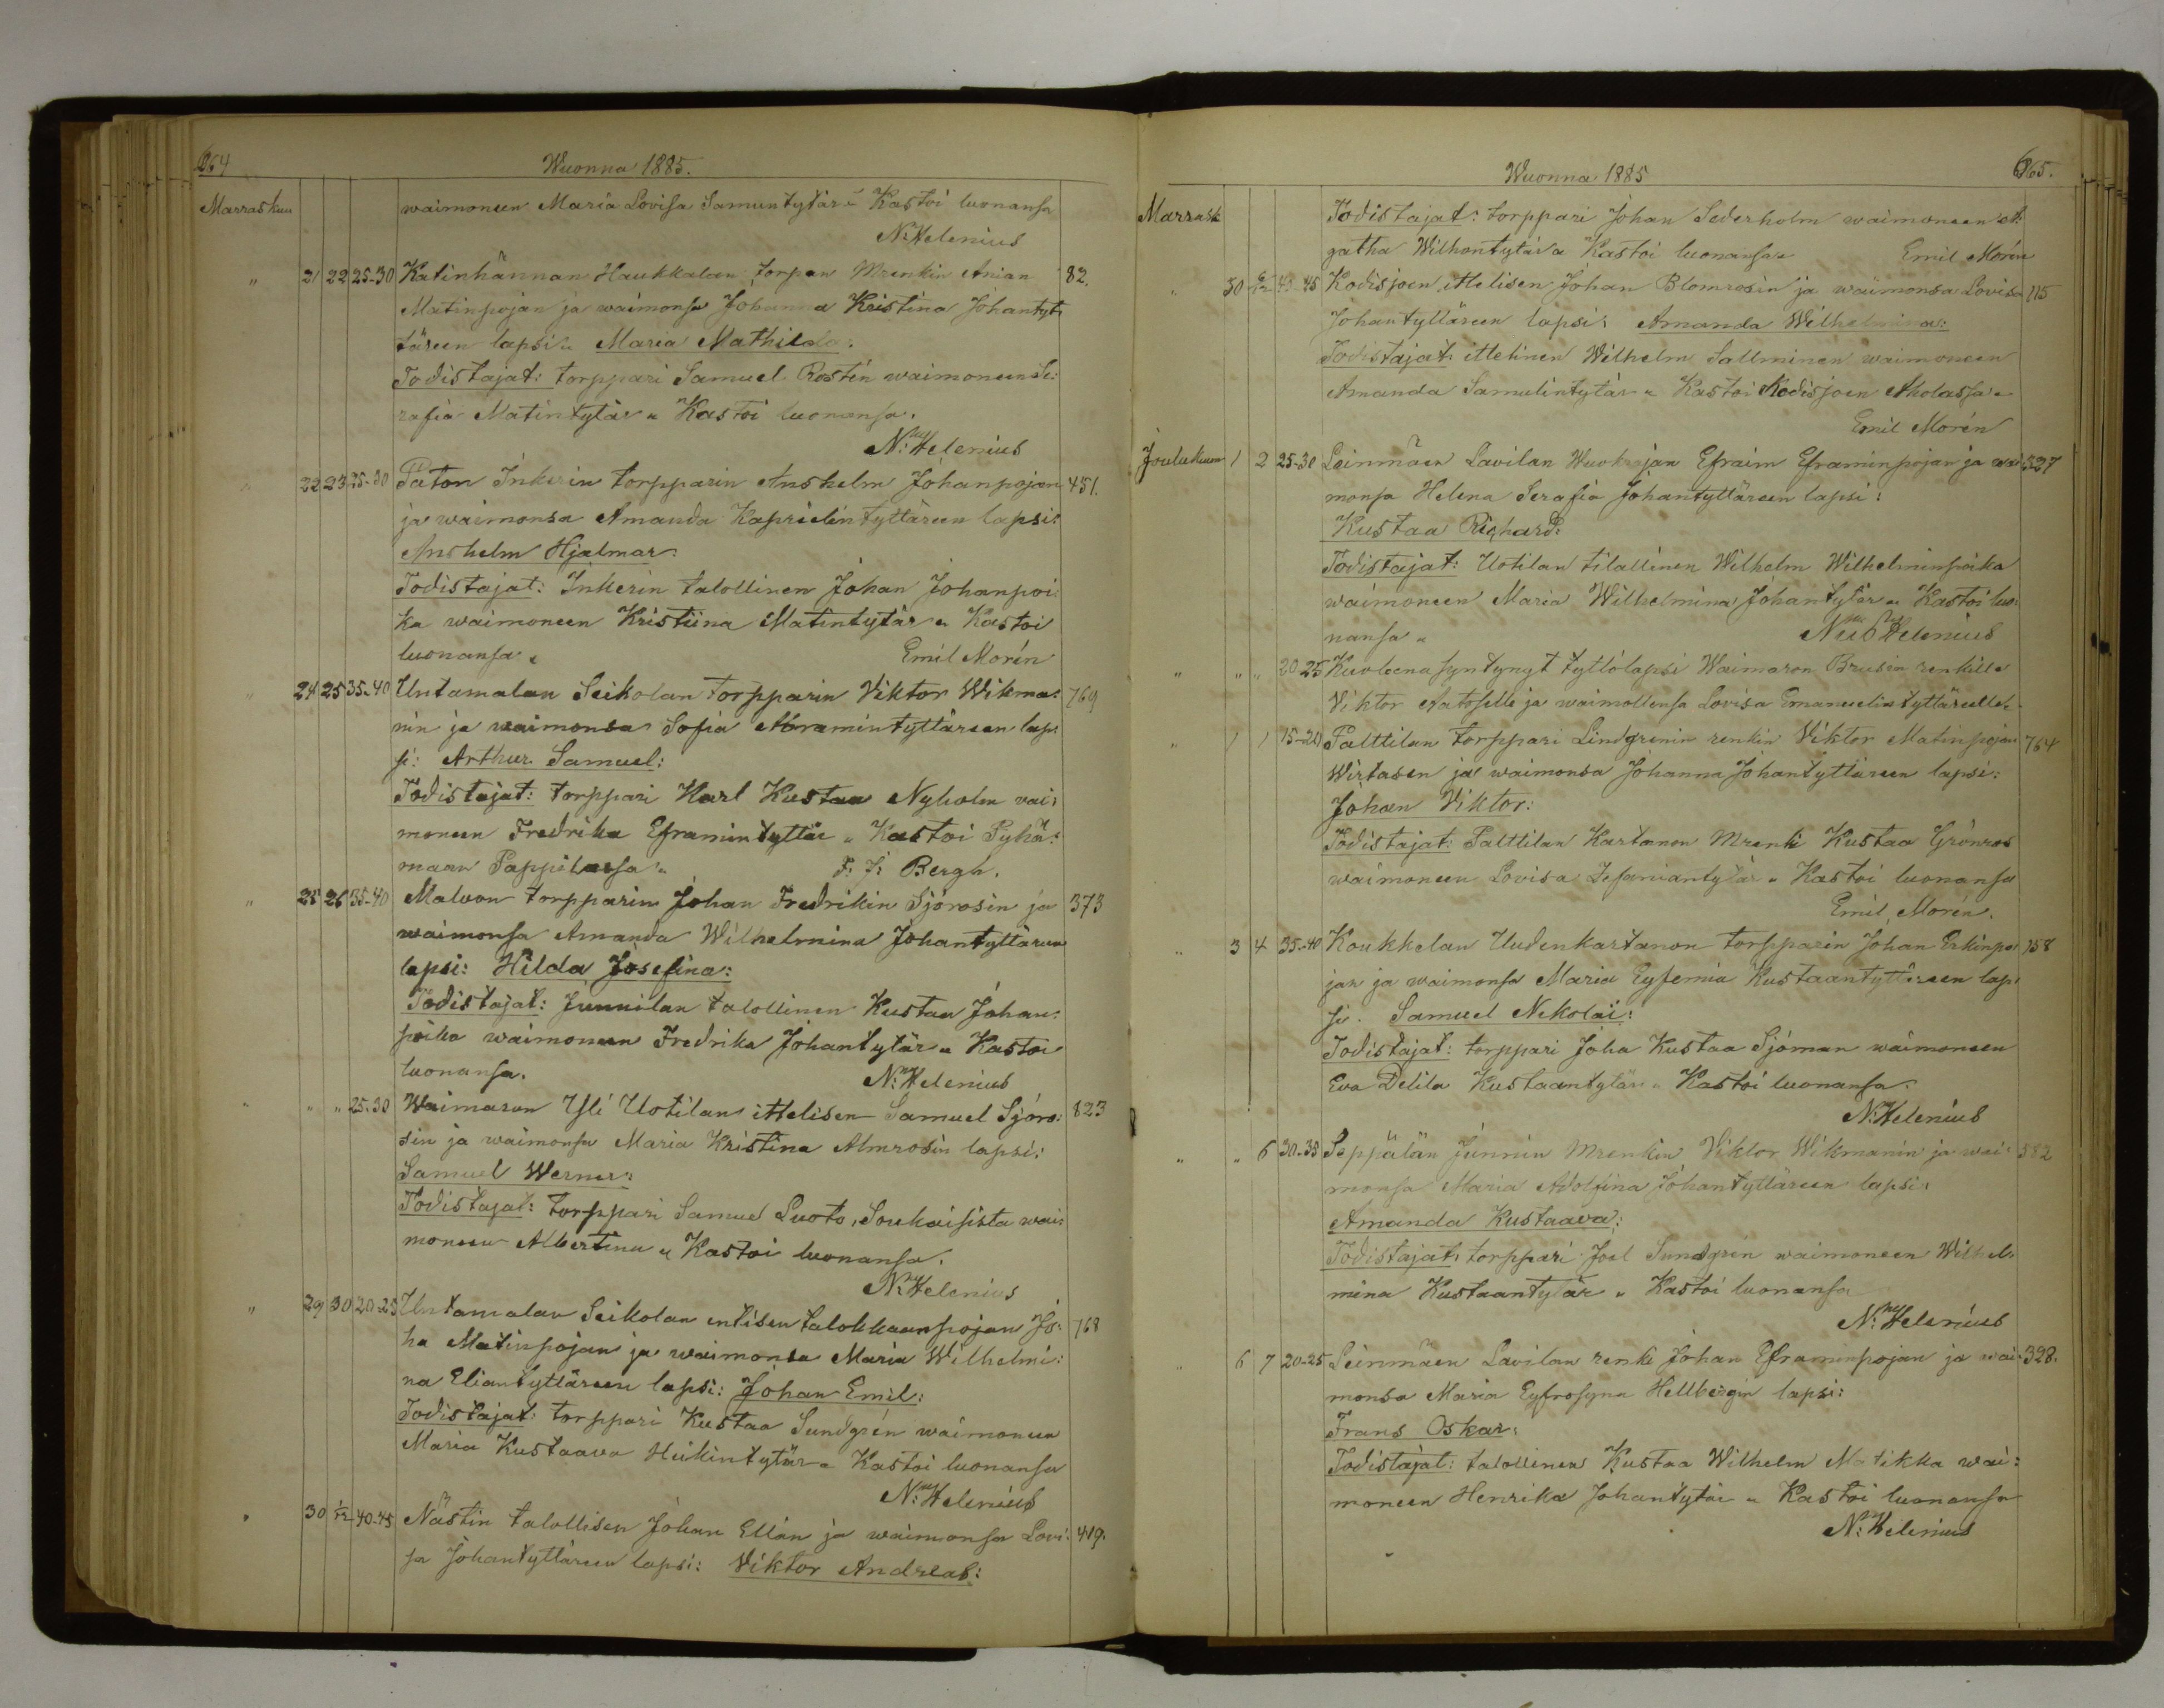 664
Wuonna 1885.
Marraskuu waimoneen Maria Lovisa Samuntytär „ Kastoi luonansa
N: Helenius
„ 21 22 25-30 Katinhännan Haukkalan torpan Mrenkin Anian 82.
Matinpojan ja waimonsa Johanna Kristina Johantyt:
täreen lapsi: Maria Mathilda:
Todistajat: torppari Samuel Rostén waimoneen Se:
rafia Matintytär „ Kastoi luonansa.
N: Helenius
„ 22 23 25-30 Paton Inkerin torpparin Anshelm Johanpojan 451.
ja waimonsa Amanda Kaprielintyttäreen lapsi:
Anshelm Hjalmar:
Todistajat: Inkerin talollinen Johan Johanpoi:
ka waimoneen Kristiina Matintytär „ Kastoi
luonansa „ Emil Morén
„ 24 25 35-40 Untamalan Seikolan torpparin Viktor Wikma: 769
nin ja waimonsa Sofia Abramintyttäreen lap:
si: Arthur Samuel:
Todistajat: torppari Karl Kustaa Nyholm vai:
moneen Fredrika Eframintyttär „ Kastoi Pyhä:
maan Pappilassa „ F. F. Bergh.
„ 25 26 35-40 Malvon torpparin Johan Fredrikin Sjörosin ja 373
waimonsa Amanda Wilhelmina Johantyttäreen
lapsi: Hilda Josefina:
Todistajat: Junnilan talollinen Kustaa Johan:
poika waimoneen Fredrika Johantytär „ Kastoi
luonansa. N: Helenius
„ „ „ 25-30 Waimaron Yli Uotilan ittelisen Samuel Sjöro: 823
sin ja waimonsa Maria Kristina Almrosin lapsi:
Samuel Werner:
Todistajat: torppari Samuel Luoto, Soukaisista wai:
moneen Albertina „ Kastoi luonansa.
N: Helenius
„ 29 30 20-25 Untamalan Seikolan entisen talokkaanpojan Jo: 768
ha Matinpojan ja waimonsa Maria Wilhelmi:
na Eliantyttäreen lapsi: Johan Emil:
Todistajat: torppari Kustaa Sundgrén waimoneen
Maria Kustaava Heikintytär „ Kastoi luonansa
N: Helenius
„ 30 1/12 40-45 Nästin talollisen Johan Ellän ja waimonsa Lovi: 419.
sa Johantyttäreen lapsi: Viktor Andreas:
Wuonna 1885
665.
Marrask Todistajat: torppari Johan Sederholm waimoneen A:
gatha Wilhontytär „ Kastoi luonansa „ Emil Morén
„ 30 6/12 40-45 Kodisjoen ittelisen Johan Blomrosin ja waimonsa Lovisa 115
Johantyttäreen lapsi: Amanda Wilhelmina:
Todistajat: ittelinen Wilhelm Sallminen waimoneen
Amanda Samulintytär „ Kastoi Kodisjoen Aholassa „
Emil Morén
Joulukuu 1 2 25-30 Leinmäen Lavilan Wuokrajan Efraim Eframinpojan ja wai 327
monsa Helena Serafia Johantyttäreen lapsi:
Kustaa Righard:
Todistajat: Uotilan tilallinen Wilhelm Wilhelminpoika
waimoneen Maria Wilhelmina Johantytär „ Kastoi luo:
nansa „ N: Helenius
„ „ „ 20-25 Kuoleena syntynyt tyttölapsi Waimaron Brusin renkille
Viktor Aatoselle ja waimollensa Lovisa Emanuelintyttärelle.
„ 1 1 15-20 Palttilan torppari Lindgrenin renkin Viktor Matinpojan 764
Wirtasen ja waimonsa Johanna Johantyttäreen lapsi:
Johan Viktor:
Todistajat: Palttilan Kartanon Mrenki Kustaa Grönros
waimoneen Lovisa Jesaiantytär „ Kastoi luonansa
Emil Morén.
„ 3 4 35-40 Koukkelan Uudenkartanon torpparin Johan Erkinpo 158
jan ja waimonsa Maria Eyfemia Kustaantyttäreen lap:
si. Samuel Nikolai:
Todistajat: torppari Joha Kustaa Sjöman waimoneen
Eva Delila Kustaantytär „ Kastoi luonansa.
N: Helenius
„ „ 6 30-35 Seppälän Junnin Mrenkin Viktor Wikmanin ja wai: 582
monsa Maria Adolfina Johantyttäreen lapsi:
Amanda Kustaava:
Todistajat: torppari Joel Sundgrén waimoneen Wilhel:
mina Kustaantytär „ Kastoi luonansa
N: Helenius
„ 6 7 20-25 Leinmäen Lavilan renki Johan Eframinpojan ja wai: 328.
monsa Maria Eyfrosyna Hellbergin lapsi:
Frans Oskar:
Todistajat: talollinen Kustaa Wilhelm Matikka wai:
moneen Henrika Johantytär „ Kastoi luonansa
N: Helenius